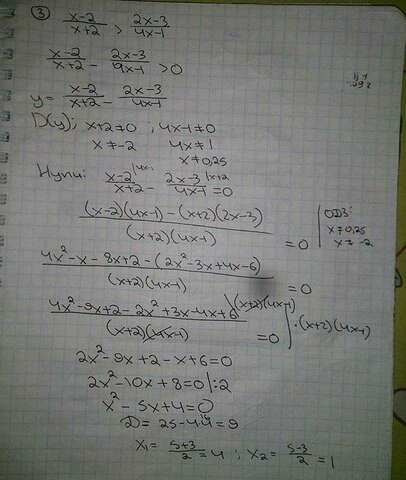 ③ x-2/x+2 > 2x-3/4x-1
x-2/x+2 - 2x-3/9x-1 > 0
y = x-2/x+2 - 2x-3/4x-1
D(y); x+2≠0 ; 4x-1≠0
x≠-2 4x≠1
x≠0,25
Нули: x-2/x+2 |4x- - 2x-3/4x-1 |x+2 = 0
(x-2)(4x-1) - (x+2)(2x-3)/(x+2)(4x-1) = 0
ОДЗ:
x≠0,25
x≠-2
4x²-x-8x+2-(2x²-3x+4x-6)/(x+2)(4x-1) = 0
4x²-9x+2-2x²+3x-4x+6/(x+2)(4x-1) \(x+2)(4x-1) = 0 | ·(x+2)(4x-1)
2x²-9x+2-x+6=0
2x²-10x+8=0 |:2
x²-5x+4=0
D= 25-4·4=9
x₁= 5+3/2 =4 ; x₂= 5-3/2 =1